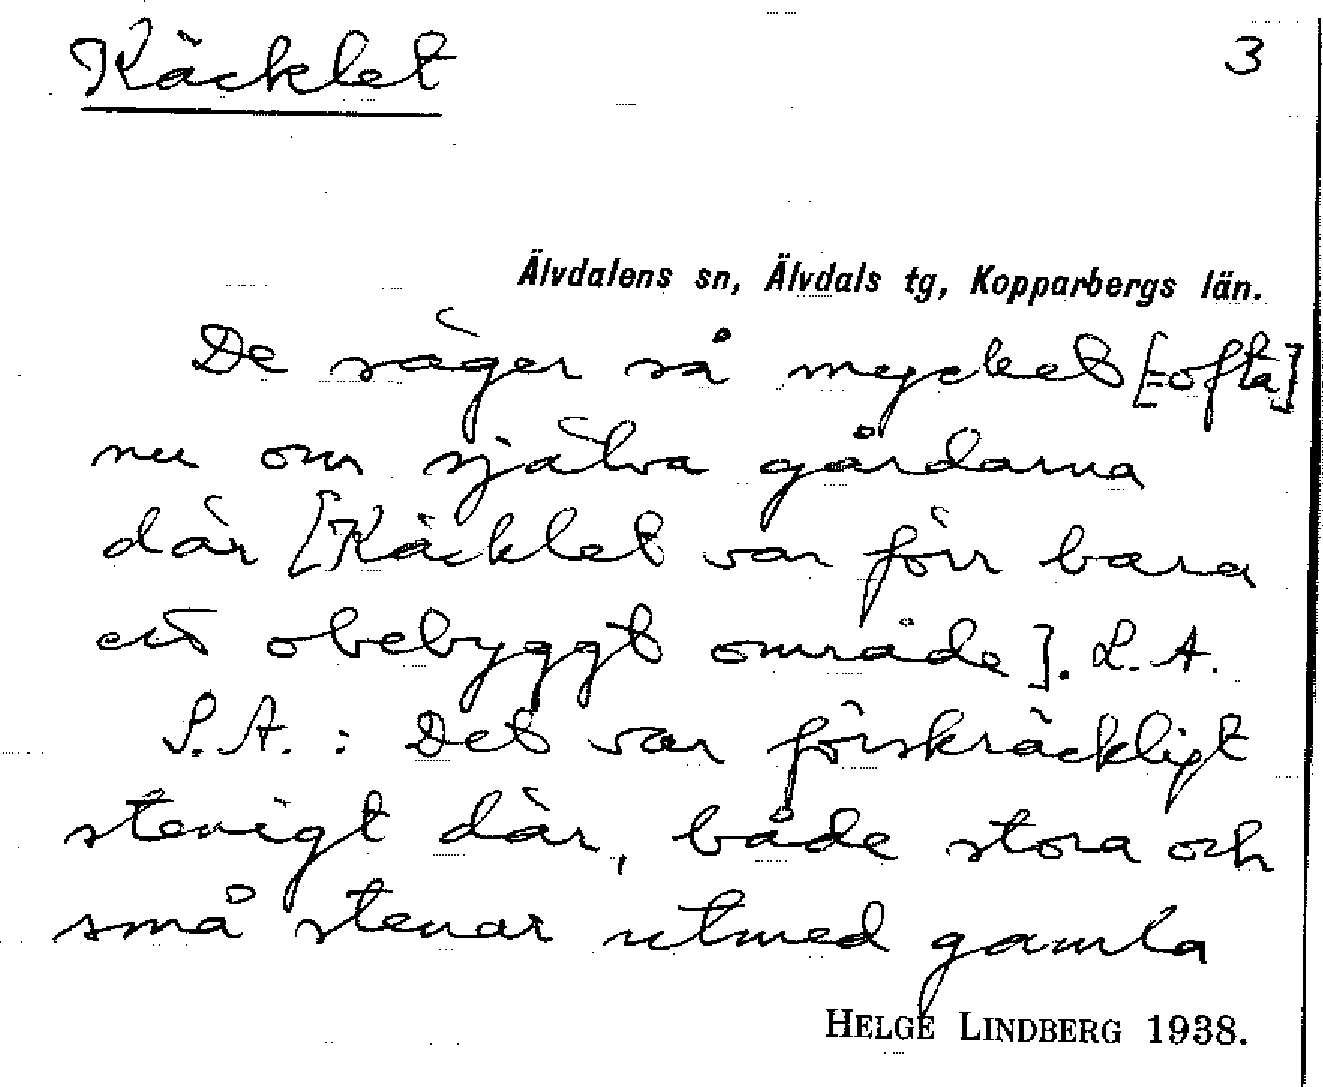 Käcklet 3
Älvdalens sn, Älvdals tg, Kopparbergs län.
De säger så mycket [=ofta]
nu om själva gårdarna
där [Käcklet var förr bara
ett obebyggt område]. L.A.
S.A. : Det var förskräckligt
stenigt där, både stora och
små stenar utmed gamla
HELGE LINDBERG 1938.